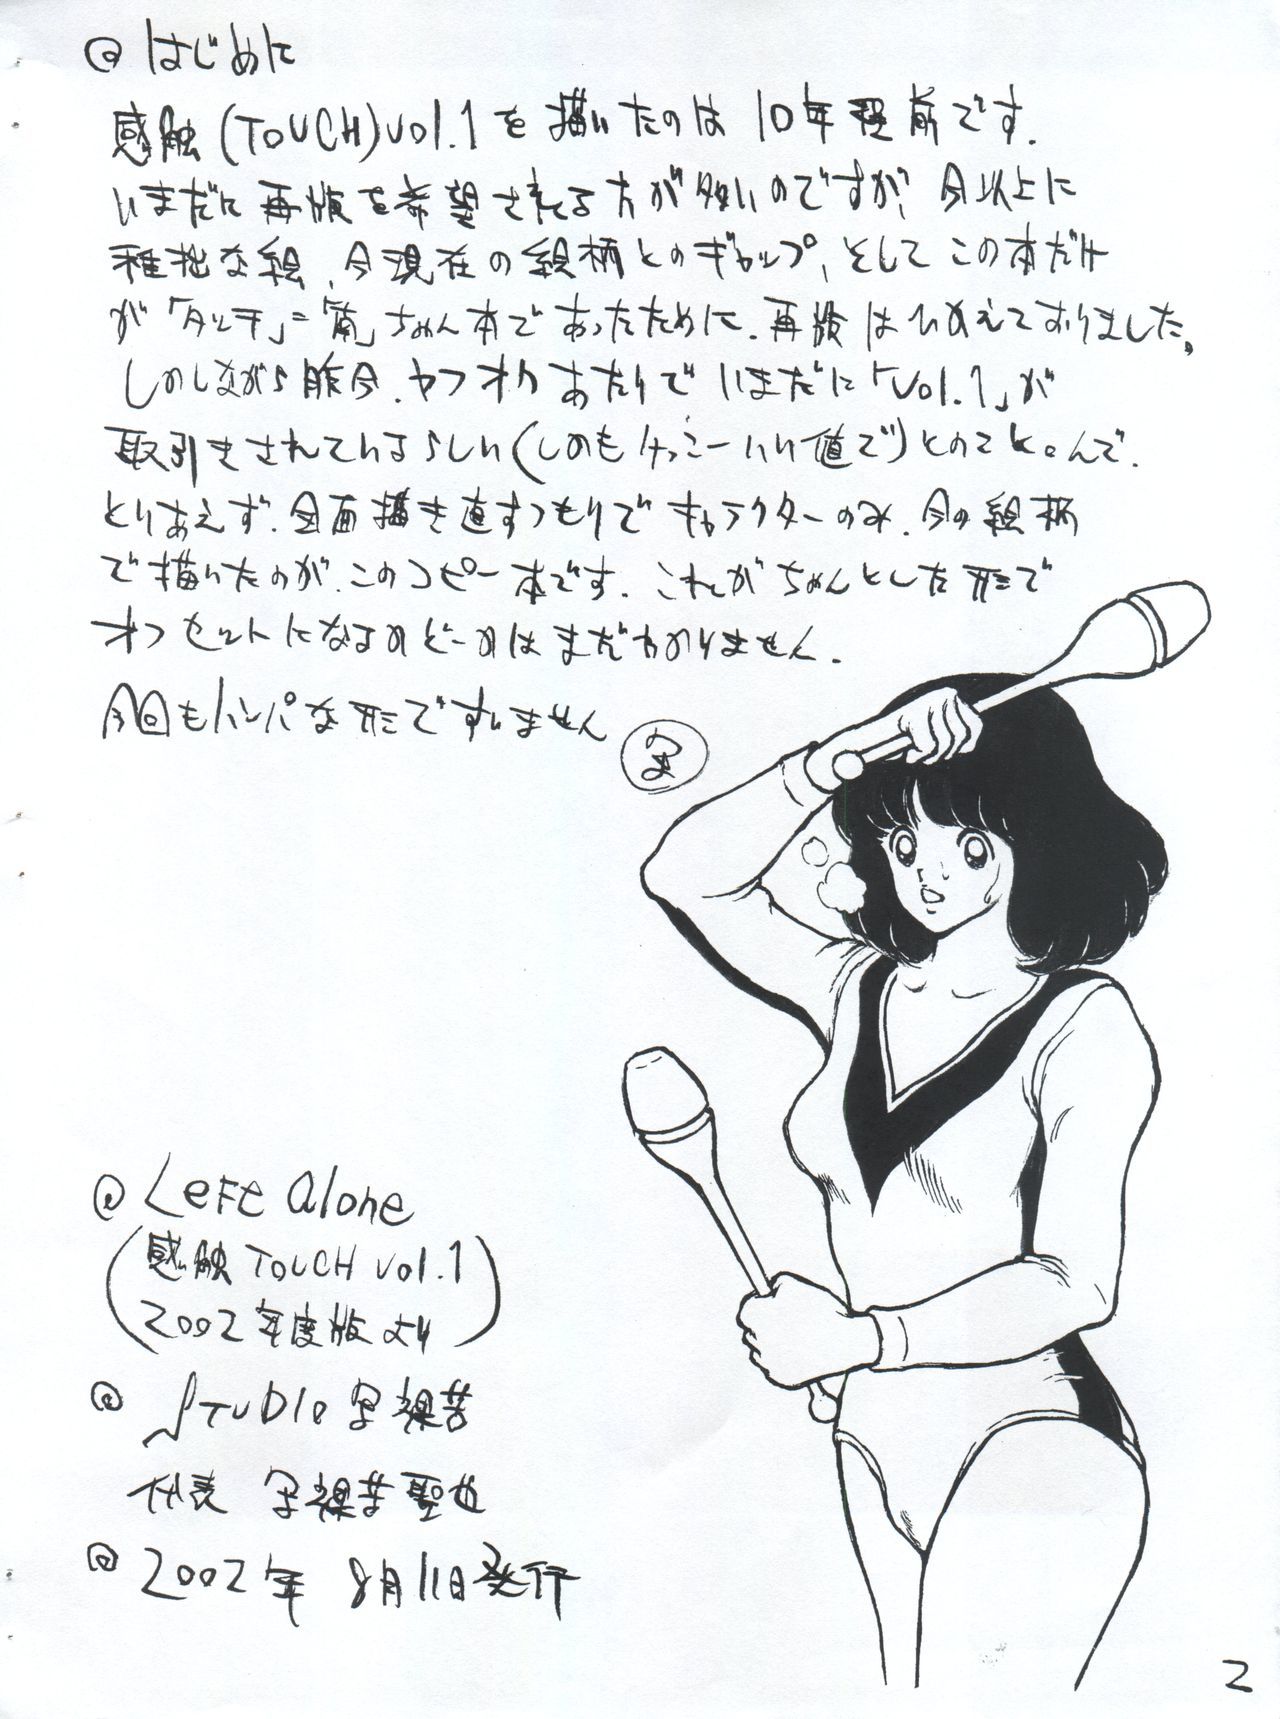 @ はじめに
感触(TOUCH)vol.1を描いたのは10年程前です.
いまだに再版を希望される方が多いのですが、今以上に
稚拙な絵、今現在の絵柄とのギャップ、そしてこの本だけ
が「タッチ」=「南」ちゃん本であったために、再版はひかえておりました。
しかしながら昨今、ヤフオクあたりでいまだに「vol.1」が
取引きされているらしい(しかもけっこーいい値で)とのことなんで、
とりあえず、全面描き直すつもりでキャラクターのみ、今の絵柄
で描いたのが、このコピー本です. これがちゃんとした形で
オフセットになるかどーかはまだわかりません.
今回もハンパな形ですいません
@ Left alone
(感触 TOUCH vol.1
2002年度版より)
@ STUDIO 写裸苦
代表 写裸苦聖也
@ 2002年 8月11日発行
2